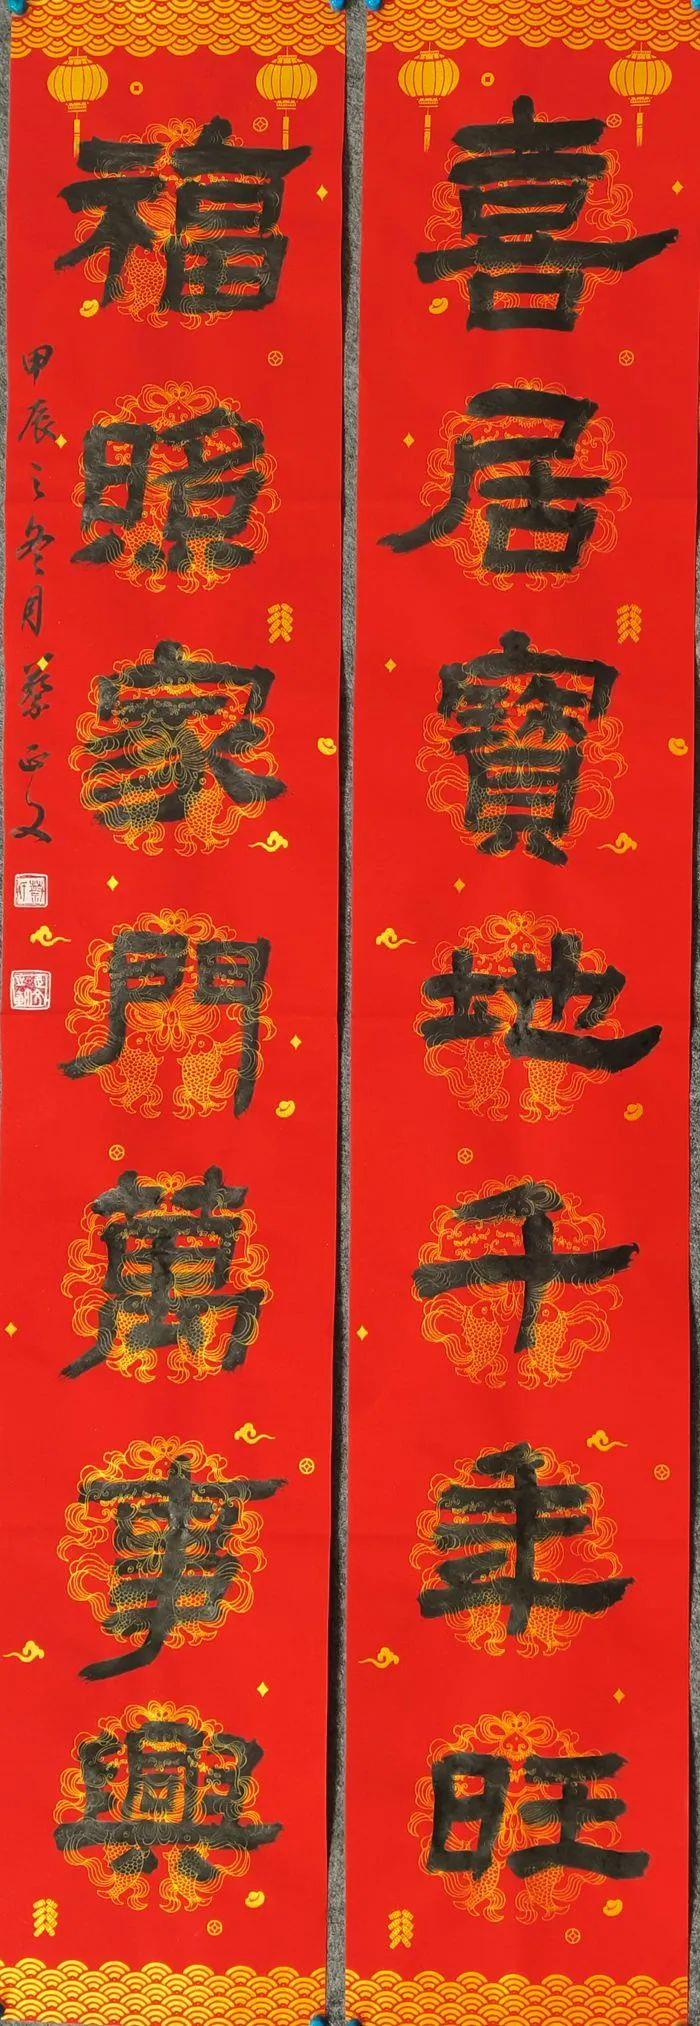 喜居寶地千年旺
福照家門萬事興
甲辰之冬月蔡正文